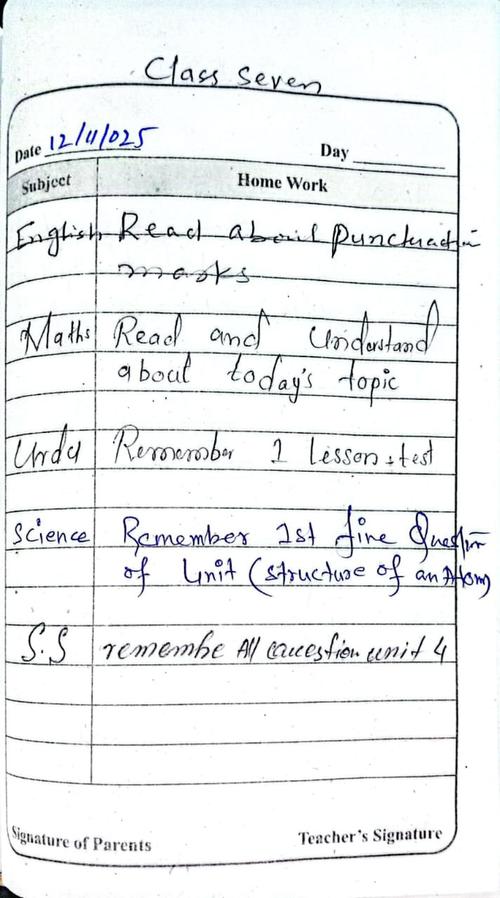 Class Seven
Date 12/11/025 Day
Subject Home Work
English Read about Punctuation
marks
Maths Read and Understand
about today's topic
Urdu Remember 1 lesson + test
Science Remember 1st five Question
of Unit (structure of an Atom)
S.S remembe All Question unit 4
Signature of Parents Teacher's Signature